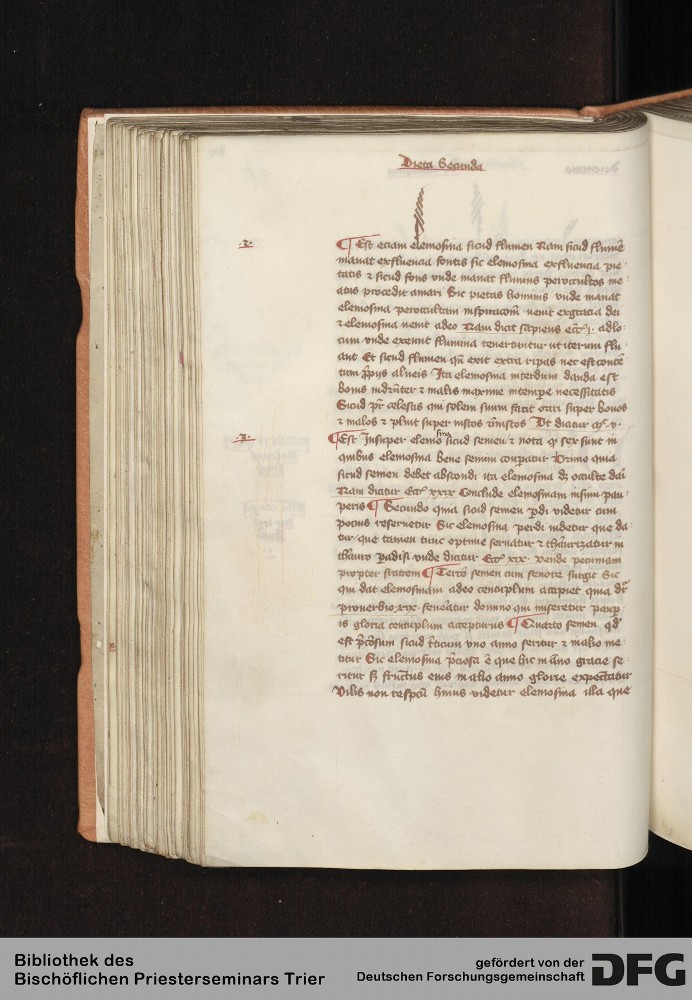 Dieta Secunda
.1. ¶ Est eciam elemosina sicud flumen Nam sicud flumē
manat exfluencia fontis sic elemosina exfluencia pie
tatis ⁊ sicud fons vnde manat fluminis peroccultos me
atus procedit amari Sic pietas hominis vnde manat
elemosina peroccultam inspiracōm̄ venit exgracia dei
⁊ elemosina venit adeo Nam dicit sapiens Ecc̄ j. ad lo
cum vnde exeunt flumina reuertuntur ut iterum flu
ant Et sicud flumen qn̄ exit extra ripas nec est conten
tum p̄pijs alueis Ita elemosina interdum danda est
bonis indr̄nter ⁊ malis maxime intempe necessitatis
Sicud pr̄ celestis qui solem suum facit oriri super bonos
⁊ malos ⁊ pluit super iustos ⁊ Vt dicitur v.
.2. ¶ Est Insuper elemosina sicud semen ⁊ nota qͥ sex sunt in
quibus elemosina bene semini conparatur Primo quia
sicud semen debet abscondi ita elemosina dꝫ occulte dari
Nam dicitur Ecc̄ xxix Conclude elemosinam insinu pau
peris ¶ Secundo quia sicud semen pdi videtur cum
pocius reseruetur Sic elemosina perdi videtur que da
tur / que tamen tunc optime seruatur ⁊ thaurizatur in
thauro padisi vnde dicitur Ecc̄ xix. Perde pecuniam
propter fratrem ¶ Tercō semen cum fenore surgit Sic
qui dat elemosinam adeo centuplum accipiet quia dr̄
prouerbio. xix. feneratur domino qui miseretur paup
is gloria centuplum accepturus ¶ Quarto semen qd
est p̄cōsum sicud tticum vno anno seritur ⁊ in alio me
titur Sic elemosina p̄ciosa ē que hic in āno gracie se
ritur sꝫ fructus eius in alio anno glorie expectatur
Vilis non respcū huius videtur elemosina illa que
Bibliothek des
Bischöflichen Priesterseminars Trier
gefördert von der
Deutschen Forschungsgemeinschaft
DFG